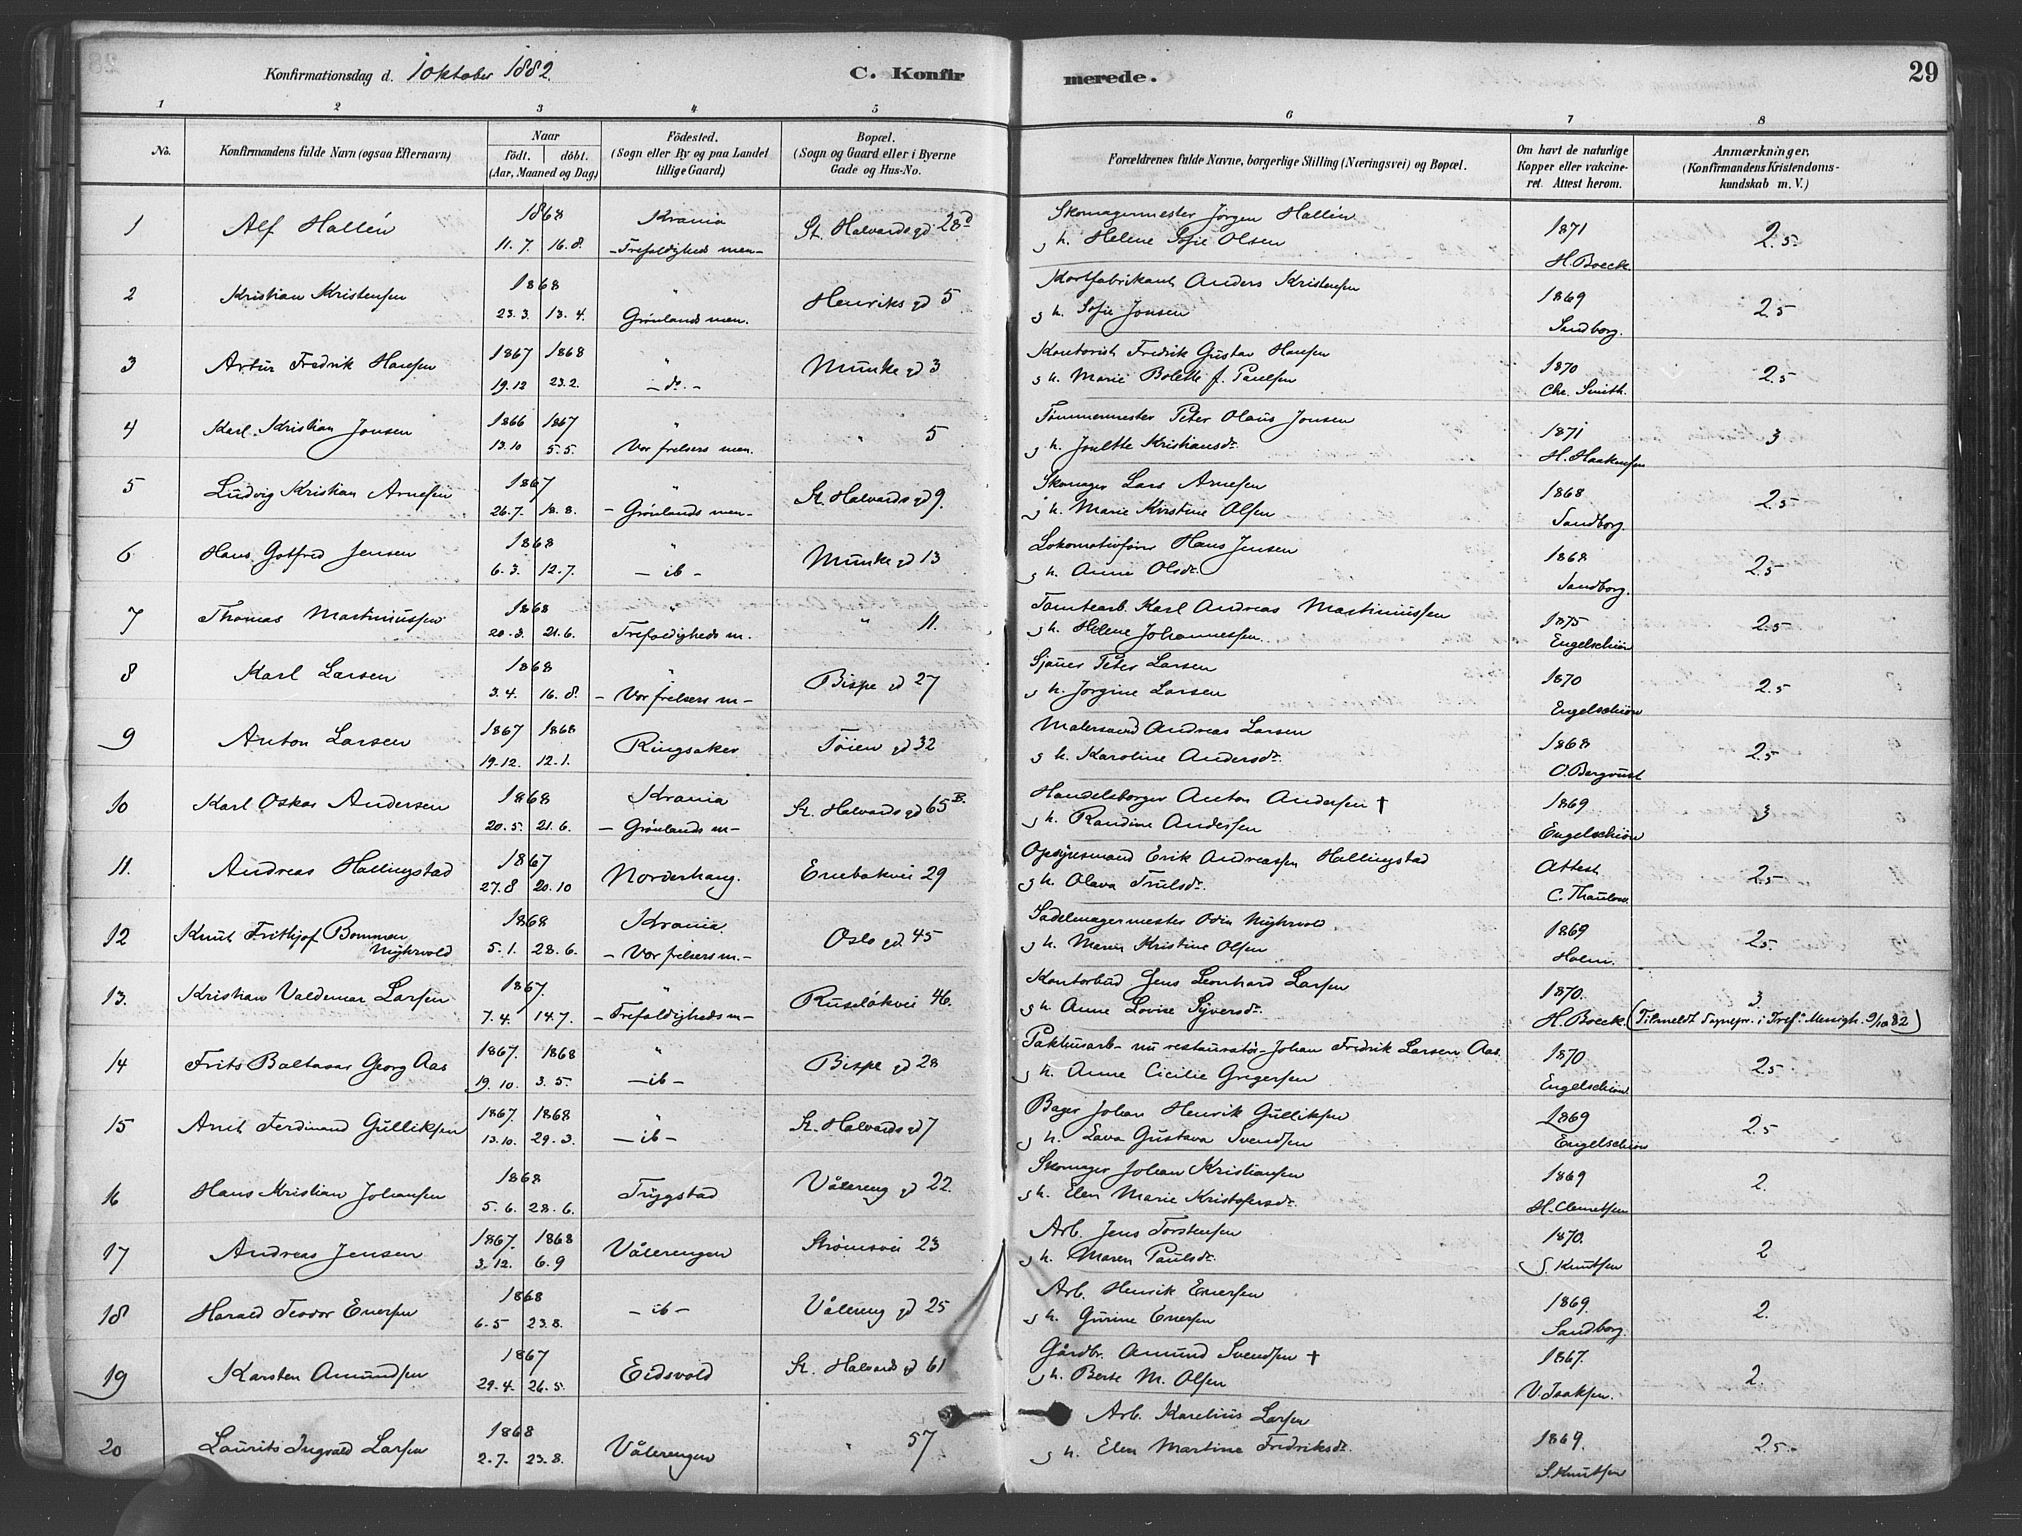 Konfirmationsdag d. 1 Oktober 1882. C. Konfirmerede. 29
1 2 3 4 5 6 7 8
No. Konfirmandens fulde Navn (ogsaa Efternavn) Naar födt. döbt. (Aar, Maaned og Dag) Födested. (Sogn eller By og paa Landet tillige Gaard) Bopæl. (Sogn og Gaard eller i Byerne Gade og Hus-No. Forældrenes fulde Navne, borgerlige Stilling (Næringsvei) og Bopæl. Om havt de naturlige Kopper eller vakcineret. Attest herom. Anmærkninger, (Konfirmandens Kristendomskundskab m. V.)
1 Alf Hallén 1868 11.7. 16.8. Krania -Trefoldigheds men- St. Halvards gd 28d Skomagermester Jörgen Hallén
g h. Helene Sofie Olsen 1871 H. Boeck. 2.5
2 Kristian Kristensen 1868 23.3. 13.4. " Grönlands men. Henriks gd 5 Kortfabrikant Anders Kristensen
g h. Sofie Jonsen 1869 Sandborg. 2.5
3 Artur Fredrik Hansen 1867 19.12 1868 23.2. " -do- Munke gd 3 Kontorist Fredrik Gustav Hansen
g h. Marie Bolette f. Paulsen 1870 Chr. Smith. 2.5
4 Karl Kristian Jonsen 1866 13.10 1867 5.5. " Vor frelsers men. " 5 Tömmermester Peter Olaus Jonsen
g h. Kristiansdr. 1871 H. Haakensen 3
5 Ludvig Kristian Arnesen 1867 26.7. 18.8. " - Grönlands men- St. Halvards gd 9. Skomager Lars Arnesen
g h. Marie Kristine Olsen 1868 Sandborg. 2.5
6 Hans Gotfred Jensen 1868 6.3. 12.7. " - ib - Munke gd 13 Lokomotivförer Hans Jensen
g h. Anne Olsdr. 1868 Sandborg. 2.5
7 Thomas Martiniussen 1868 20.3. 21.6. " Trefoldigheds m. " 11. Tomtearb. Karl Andreas Martiniussen
g h. Helene Johannessen. 1875 Engelschiön 2.5
8 Karl Larsen 1868 3.4. 16.8. " - Vor frelsers m- Bispe gd 27 Sjouer Peter Larsen
g h. Jörgine Larsen 1870 Engelschiön 2.5
9 Anton Larsen 1867 19.12. 1868 12.1. Ringsaker Töien gd 32 Malersvend Andreas Larsen
g h. Karoline Andersdr. 1868 O. Bergvist 2.5
10 Karl Oskar Andersen 1868 20.5. 21.6. Krania - Grönlands m- St. Halvards gd 65 B. Handelsborger Anton Andersen †
g h. Randine Andersen 1869 Engelschiön 3
11. Andreas Hallingstad 1867 27.8 20.10 Norderhaug. Enebakvei 29 Opsynsmand Erik Andreassen Hallingstad
g h. Olava Trulsdr. Attest C. Thaulow. 2.5
12 Knut Frithjof Bommen Myhrvold 1868 5.1. 28.6. Krania. - Vor frelsers m.- Oslo gd 45 Sadelmagermester Odin Myhrvold
g h. Maren Kristine Olsen 1869 Holm. 2.5
13. Kristian Valdemar Larsen 1867. 7.4. 14.7. " - Trefoldigheds m- Ruselökvei 46. Kontorbud Jens Leonhard Larsen
g h. Anne Lovise Syversdr. 1870. H. Boeck. 3 (Tilmeldt Sognepr. i Tref. Menigh. 9/10 82)
14 Frits Baltasar Georg Aas 1867. 19.10. 1868 3.5. " - ib - Bispe gd 28 Pakhusarb - nu restauratör - Johan Fredrik Larsen Aas.
g h. Anne Cicilie Gregersen 1870 Engelschiön 2.5
15 Arnt Ferdinand Gulliksen 1867. 13.10. 1868 29.3. " - ib - St. Halvards gd 7 Bager Johan Henrik Gulliksen
g h. Lava Gustava Svendsen 1869 Engelschiön 2.5
16 Hans Kristian Johansen 1868 5.6. 28.6. Trygstad Vålereng gd 22. Skomager Johan Kristiansen
g h. Elen Marie Kristofersdr. 1869 H. Clemetsen 2.
17 Andreas Jensen 1867. 3.12. 1868 6.9 Vålerengen Strömsvei 23 Arb. Jens Torstensen
g h. Maren Paulsdr. 1870. S. Knutsen 2
18 Harald Teodor Enersen 1868 6.5 23.8. - ib - Vålereng gd 25 Arb. Henrik Enersen
g h. Gurine Enersen 1869. Sandborg. 2.
19 Karsten Amundsen 1867 29.4. 26.5. Eidsvold St. Halvards gd 61 Gårdbr. Amund Svendsen †
g h. Berte M. Olsen 1867. V. Isaksen. 2.
20 Laurits Ingvald Larsen 1868 2.7. 23.8. Vålerengen " 57 Arb. Karelius Larsen
g h. Elen Martine Fredriksdr. 1869. S. Knutsen 2.5